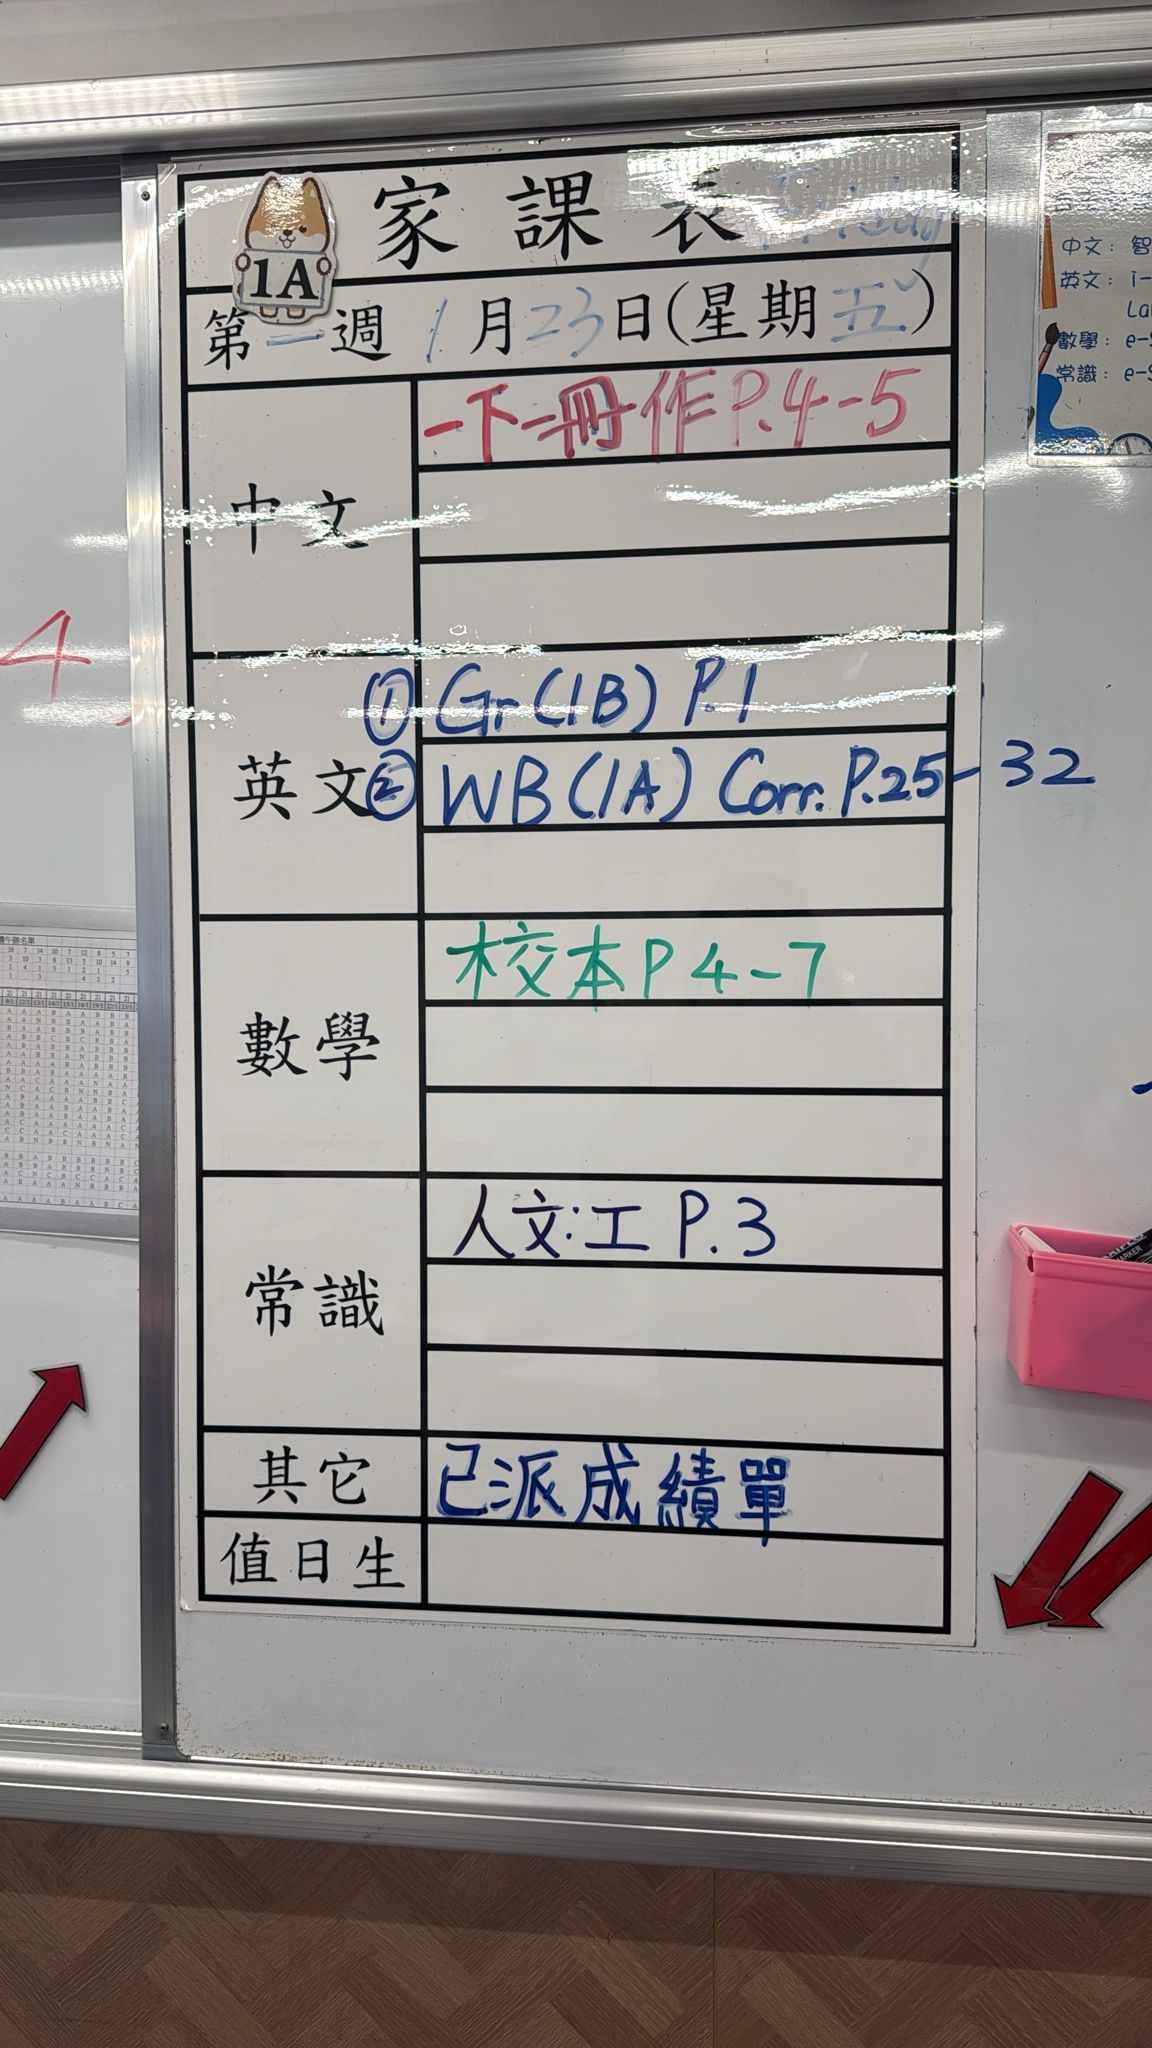 家課表 Friday
1A
第一週 1月23日(星期五)
中文
一下一冊作P.4-5
英文
① Gr(1B) P.1
② WB(1A) Corr. P.25-32
數學
校本P 4-7
常識
人文:工 P.3
其它
已派成績單
值日生
4
中文: 智
英文: i-
數學: e-S
常識: e-S
MARKER